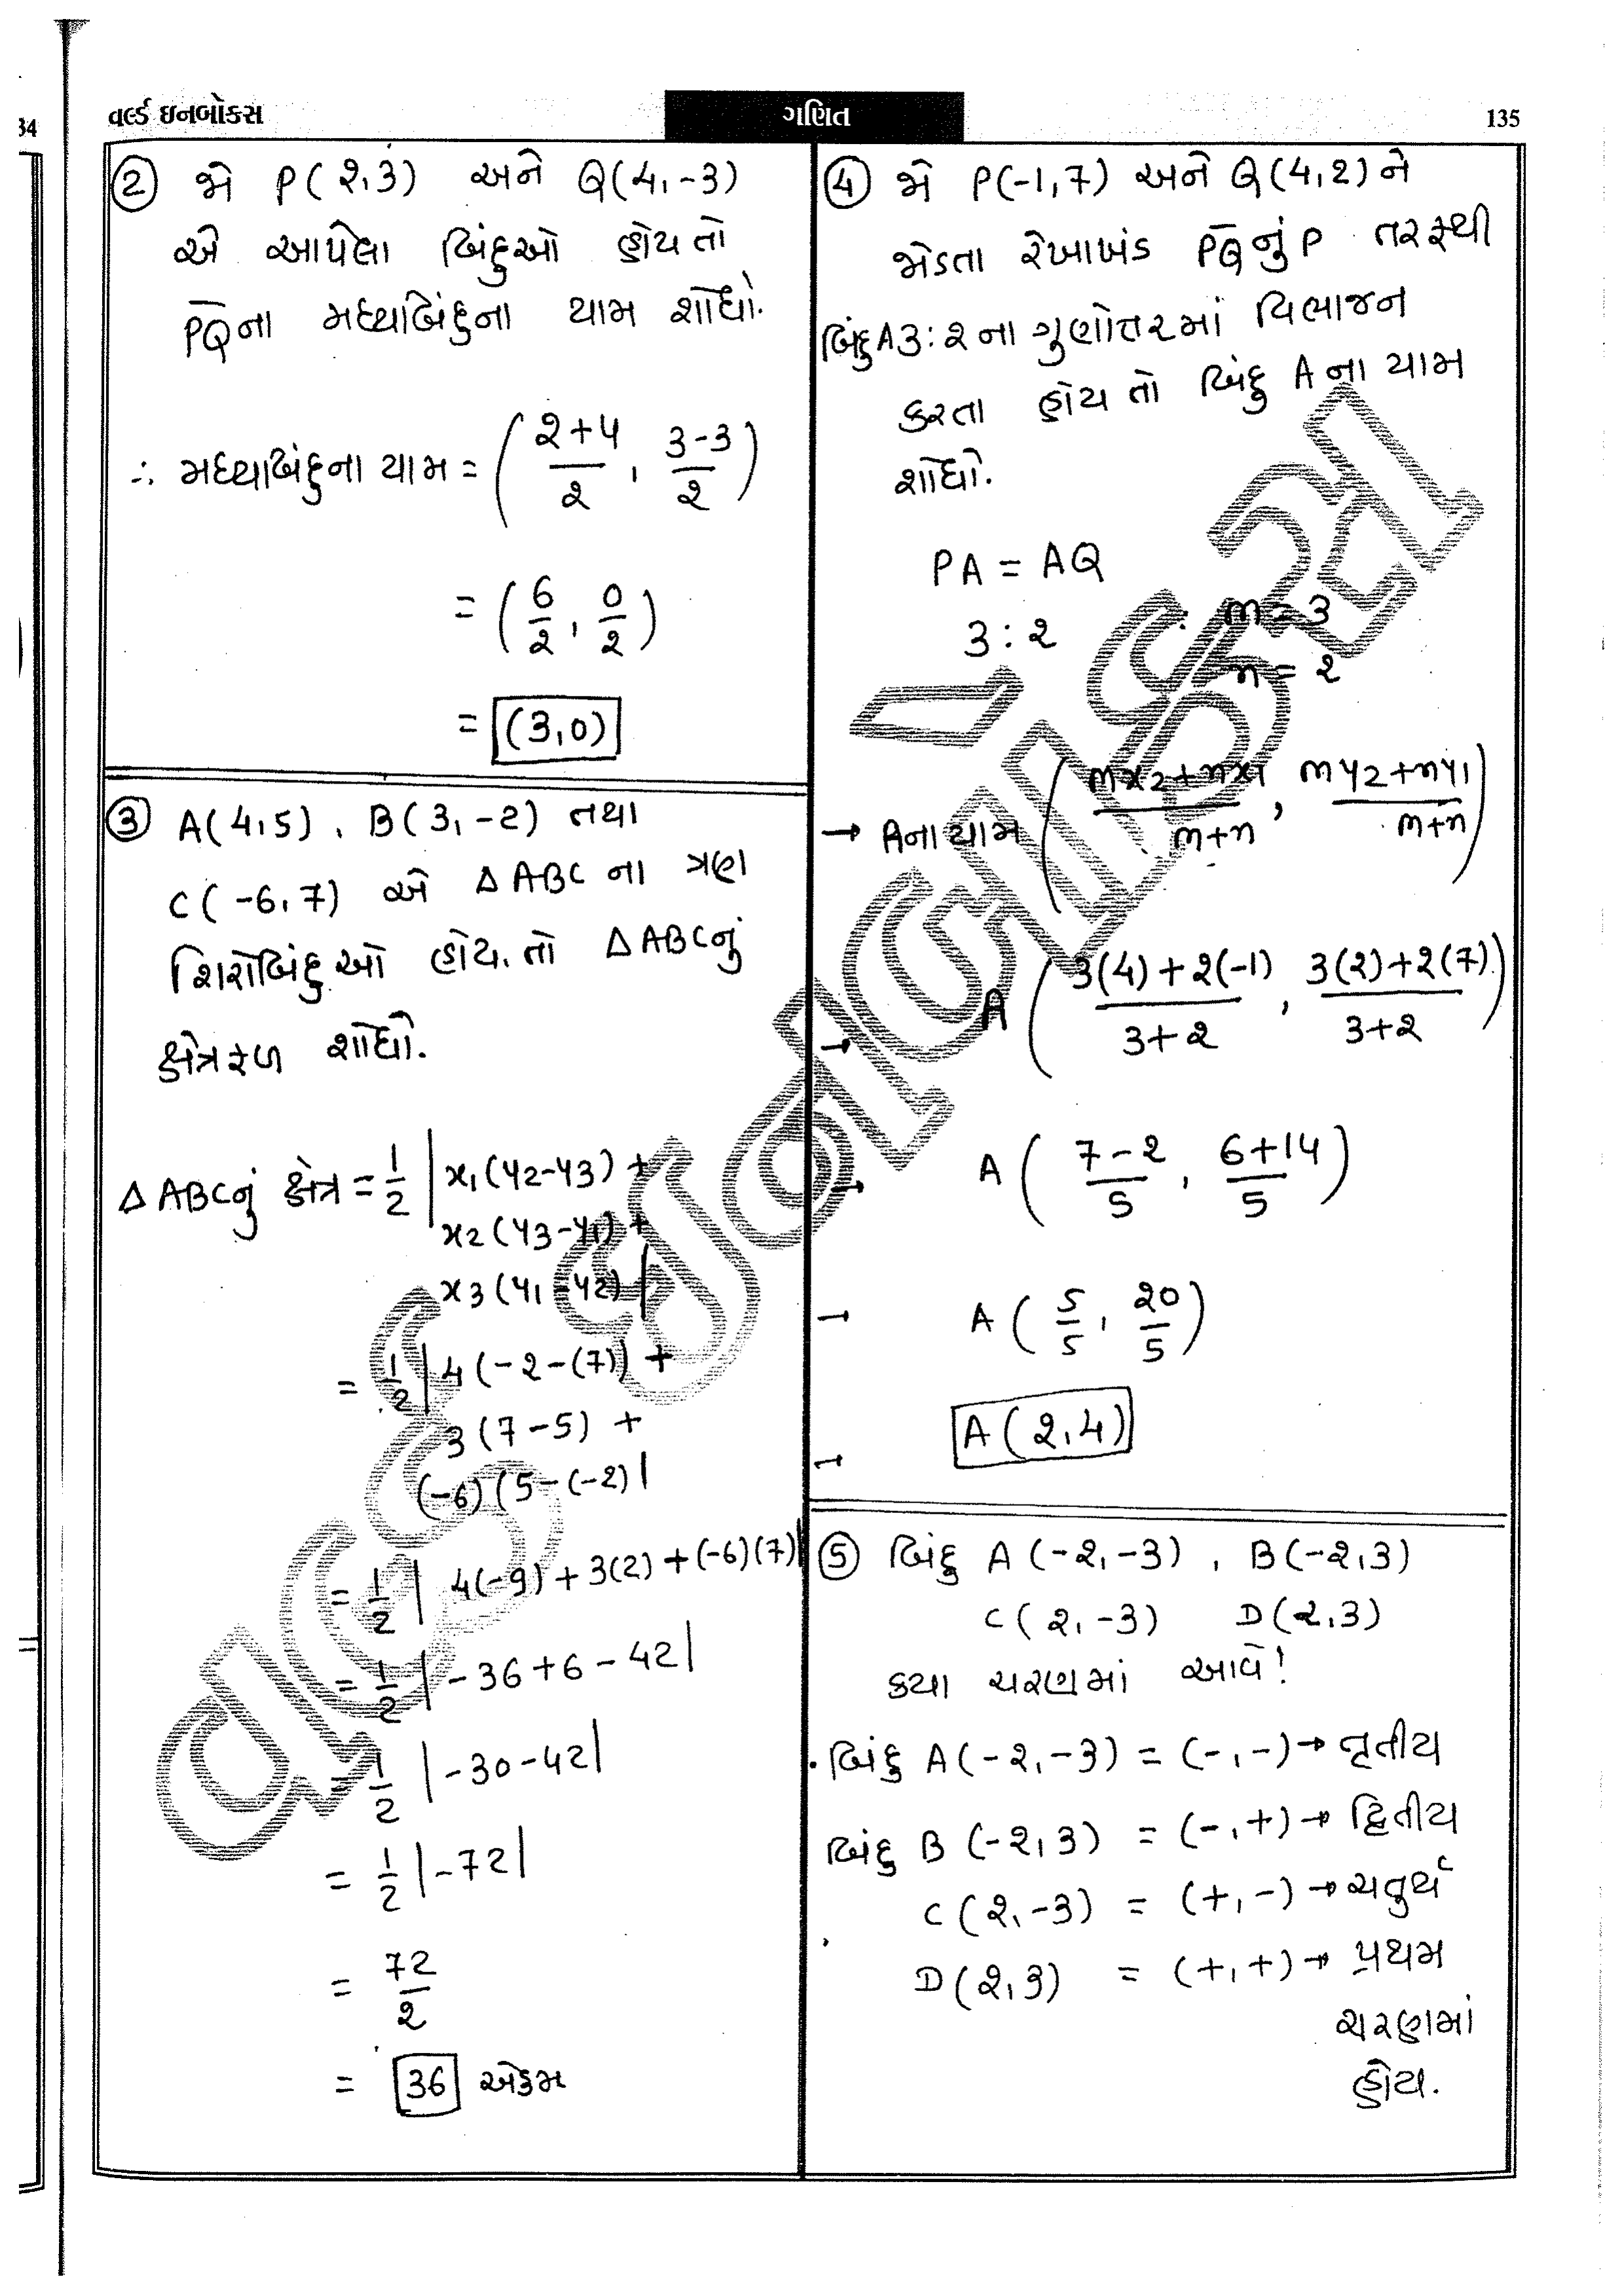 34
વર્લ્ડ ઇનબોક્સ
ગણિત
135
② જો P(2,3) અને Q(4,-3)
એ આપેલા બિંદુઓ હોય તો
PQના મધ્યબિંદુના યામ શોધો.
∴ મધ્યબિંદુના યામ = (2+4/2, 3-3/2)
= (6/2, 0/2)
= (3,0)
③ A(4,5), B(3,-2) તથા
C(-6,7) એ △ABC ના ત્રણ
શિરોબિંદુઓ હોય, તો △ABCનું
ક્ષેત્રફળ શોધો.
△ABCનું ક્ષેત્ર = 1/2 |x1(y2-y3) +
x2(y3-y1) +
x3(y1-y2)|
= 1/2 |4(-2-(7)) +
3(7-5) +
(-6)(5-(-2)|
= 1/2 | 4(-9)+3(2)+(-6)(7)|
= 1/2 |-36+6-42|
= 1/2 |-30-42|
= 1/2 |-72|
= 72/2
= 36 એકમ
④ જો P(-1,7) અને Q(4,2) ને
જોડતા રેખાખંડ PQનું P તરફથી
બિંદુ A 3:2 ના ગુણોત્તરમાં વિભાજન
કરતા હોય તો બિંદુ A ના યામ
શોધો.
PA = AQ
3 : 2 : m = 3
n = 2
→ Aના યામ (mx2+nx1/m+n, my2+ny1/m+n)
→ A (3(4)+2(-1)/3+2, 3(2)+2(7)/3+2)
→ A (7-2/5, 6+14/5)
→ A (5/5, 20/5)
→ A(2,4)
⑤ બિંદુ A(-2,-3), B(-2,3)
C(2,-3) D(2,3)
કયા ચરણમાં આવે!
બિંદુ A(-2,-3) = (-,-) → તૃતીય
બિંદુ B(-2,3) = (-,+) → દ્વિતીય
C(2,-3) = (+,-) → ચતુર્થ
D(2,3) = (+,+) → પ્રથમ
ચરણમાં
હોય.
વર્લ્ડ ઇનબોક્સ